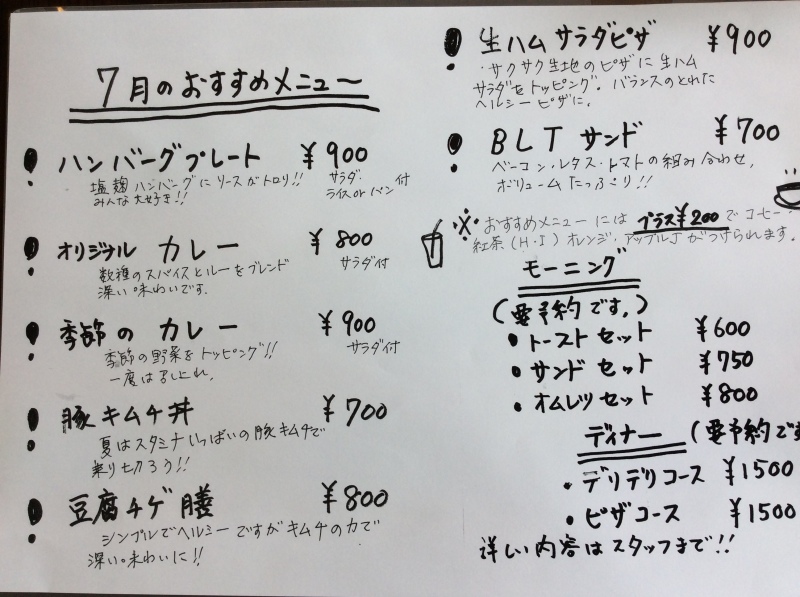 7月のおすすめメニュー
ハンバーグプレート ¥900
塩麹ハンバーグにソースがトロリ!! サラダ・
みんな大好き!! ライスorパン付
オリジナル カレー ¥800
数種のスパイスとルーをブレンド サラダ付
深い味わいです.
季節の カレー ¥900
季節の野菜をトッピング!! サラダ付
一度は召しあれ.
豚キムチ丼 ¥700
夏はスタミナいっぱいの豚キムチで
乗り切ろう!!
豆腐チゲ膳 ¥800
シンプルでヘルシーですがキムチの力で
深い味わいに!!
生ハムサラダピザ ¥900
・サクサク生地のピザに生ハム
サラダをトッピング。バランスのとれた
ヘルシーピザに.
BLTサンド ¥700
ベーコン・レタス・トマトの組み合わせ.
ボリュームたっぷり!!
※おすすめメニューにはプラス¥200でコーヒー
紅茶(H・I)オレンジ・アップルJがつけられます.
モーニング
(要予約です。)
・トーストセット ¥600
・サンドセット ¥750
・オムレツセット ¥800
ディナー (要予約です
・デリデリコース ¥1500
・ピザコース ¥1500
詳しい内容はスタッフまで!!